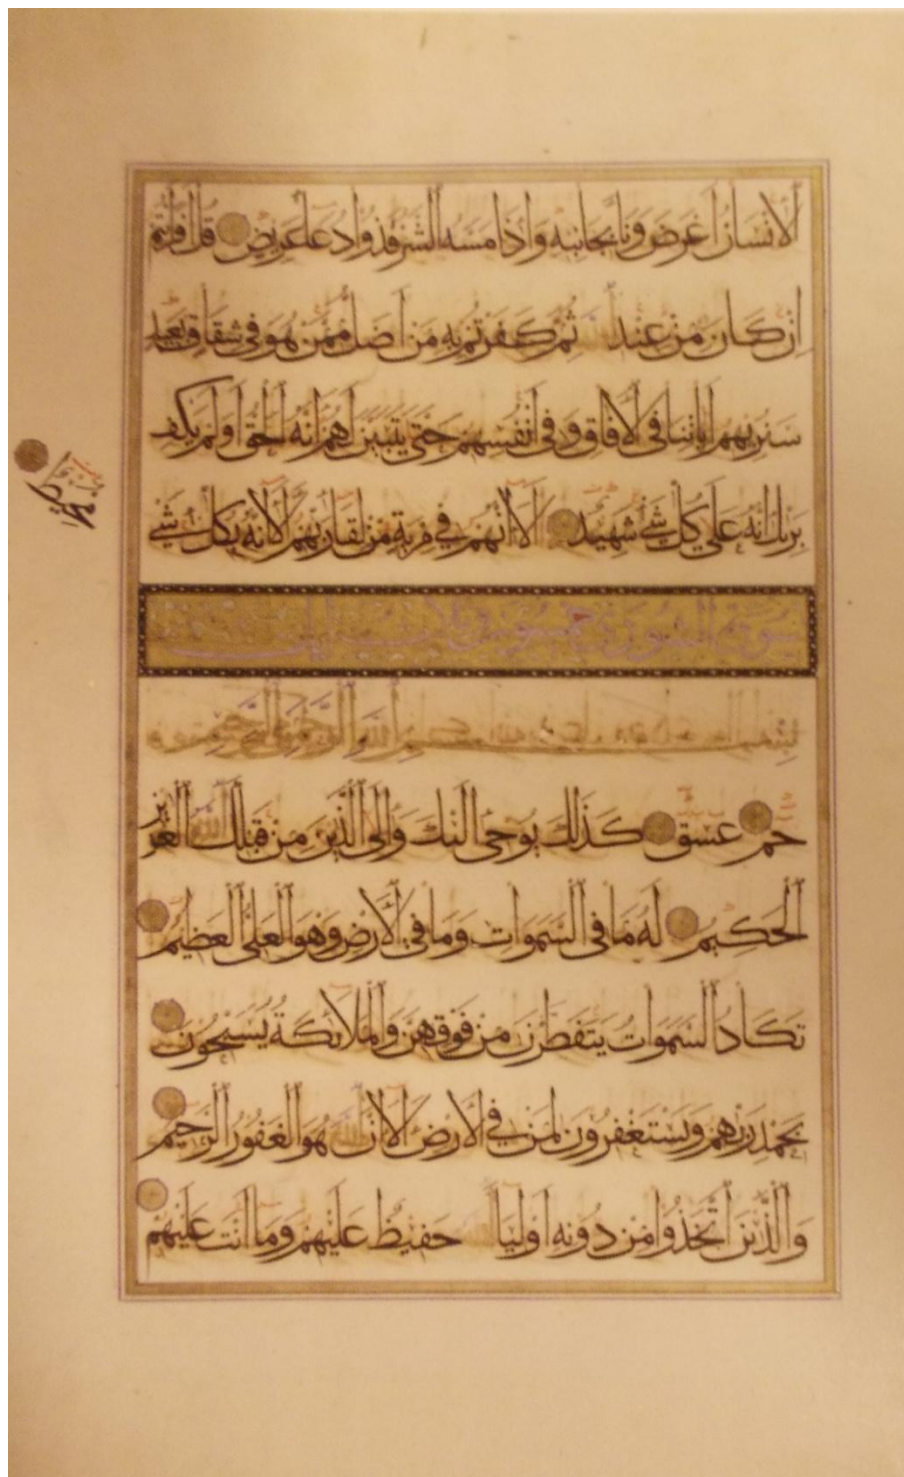 الانسان اعرض وناى بجانبه واذا مسه الشر فذو دعاء عريض قل ارايتم
ان كان من عند الله ثم كفرتم به من اضل ممن هو في شقاق بعيد
سنريهم اياتنا في الافاق وفي انفسهم حتى يتبين لهم انه الحق اولم يكف
بربك انه على كل شئ شهيد الا انهم في مرية من لقاء ربهم الا انه بكل شئ
محيط
سورة الشورى خمسون
بسم الله الرحمن الرحيم
حم عسق كذلك يوحى اليك والى الذين من قبلك الله العزيز
الحكيم له ما في السموات وما في الارض وهو العلى العظيم
تكاد السموات يتفطرن من فوقهن والملائكة يسبحون
بحمد ربهم ويستغفرون لمن في الارض الا ان الله هو الغفور الرحيم
والذين اتخذوا من دونه اولياء الله حفيظ عليهم وما انت عليهم